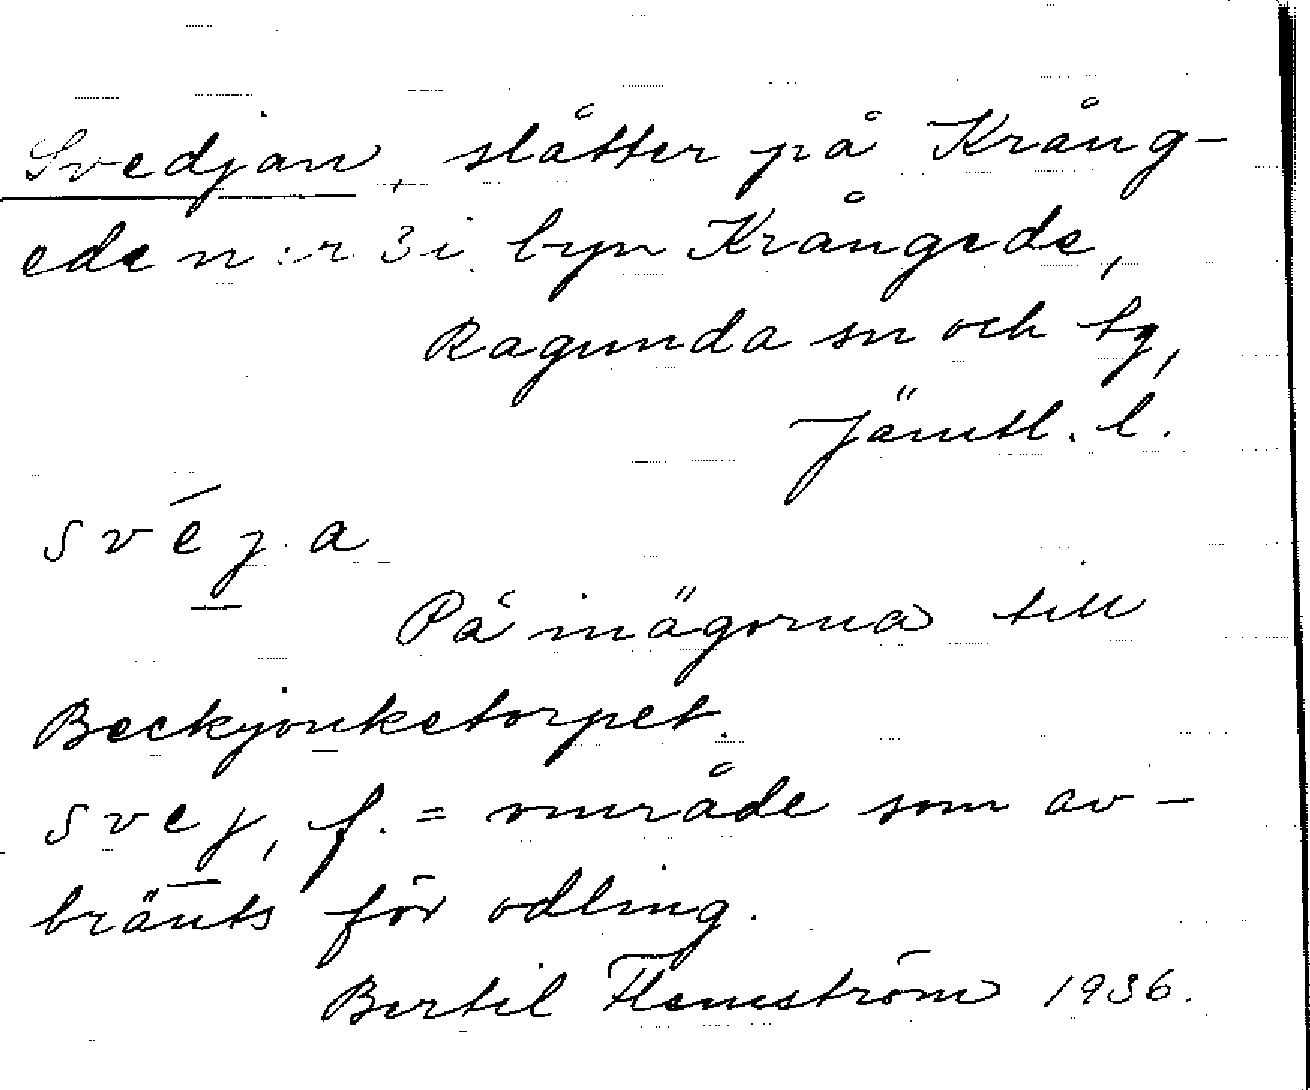 Svedjan, slåtter på Krång-
ede n:r 3 i byn Krångede,
Ragunda sn och tg,
Jämtl. l.
svéja
På inägorna till
Beckjonketorpet.
svej, f. = område som av-
bränts för odling.
Bertil Flemström 1936.